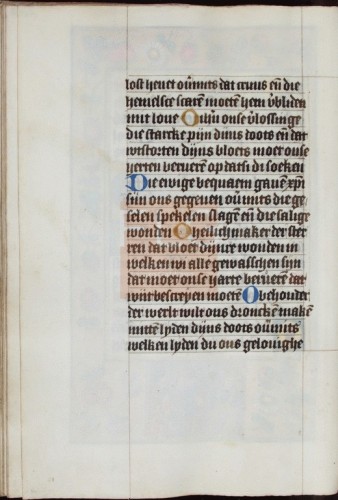 lost heuet oūmits dat cruus eñ die
hemelsce scarē moetē hem v̄bliden
mit loue O vrū onse v̄lossinge
die starcke pijn dijns doots en dat
wtstorten dijns bloets moet onse
herten berueren op dat si di soeken
Die ewige bequaem gauen xp̄i
sijn ons gegeuen oūmits die ge
selen spekelen slagen eñ die salige
wonden O heilichmaker der ster
ren dat bloet dijnre wonden in
welken wi alle gewasschen sijn
dat moet onse harte berueren dat
wut bescreyen moetē O behouder
der werlt wilt ons droncken makē
mittē lyden dijns doots oūmits
welken lyden du ons gelouighe